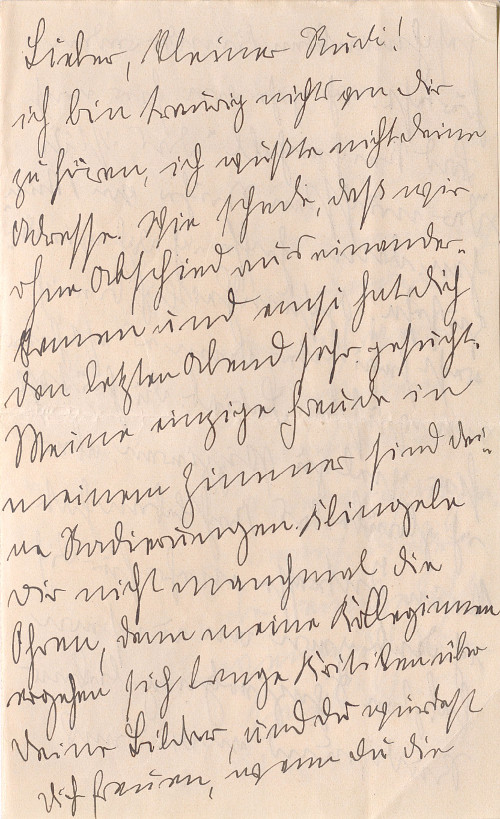 Lieber, kleiner Rudi!
ich bin traurig nichts von dir
zu hören, ich wußte nicht deine
Adresse. Wie schade, daß wir
ohne Abschied auseinander-
kamen und hat dich
den letzten Abend sehr gesucht.
Meine einzige Freude in
meinem Zimmer sind dei-
ne Radierungen. Klingeln
dir nicht manchmal die
Ohren, denn meine Kolleginnen
ergehen sich lange Kritiken über
deine Bilder, und du würdest
dich freuen, wenn du die